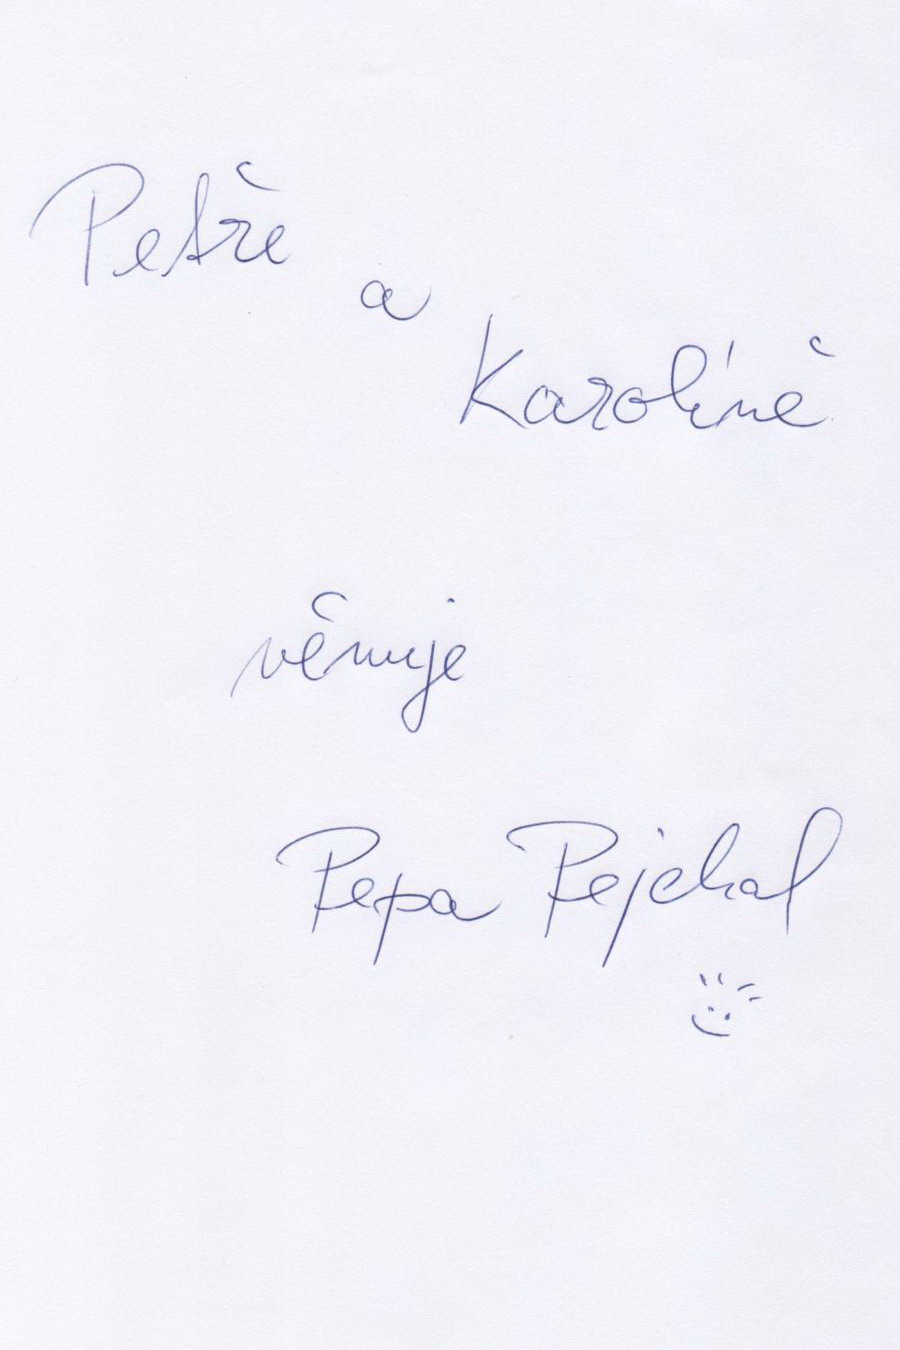 Petře
a
Karolíně
věnuje
Pepa Pejchal